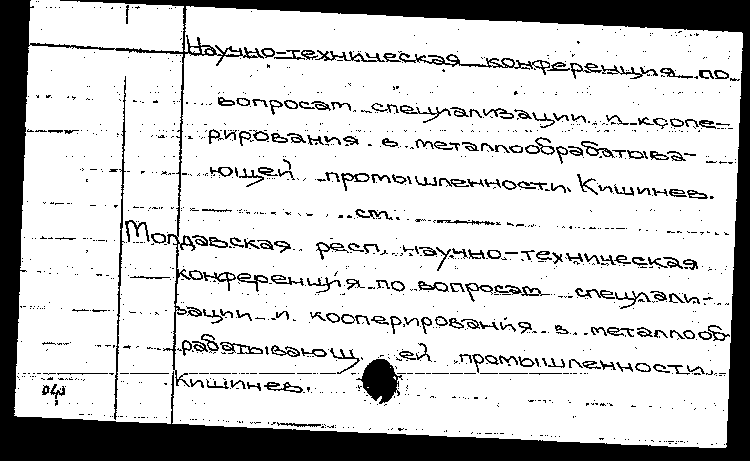 Научно-техническая конференция по
вопросам специализации и коопе-
рирования в металлообрабатыва-
ющей промышленности. Кишинев.
см.
Молдавская респ. научно-техническая
конференция по вопросам специали-
зации и кооперирования в металлооб-
рабатывающей промышленности.
Кишинев.